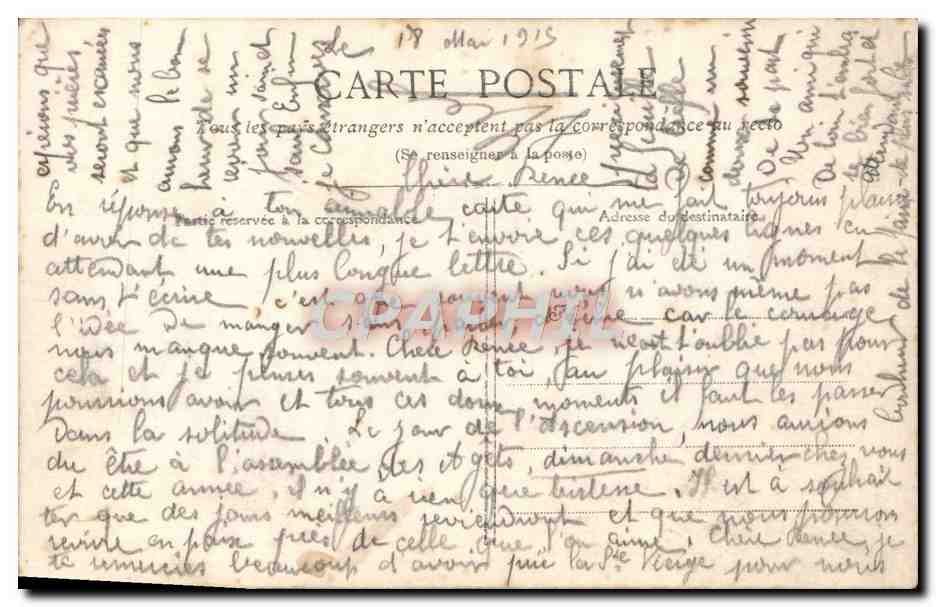 18 Mai 1915
CARTE POSTALE
Tous les pays étrangers n'acceptent pas la correspondance au recto
(Se renseigner à la poste)
Chère Renée
Partie réservée à la correspondance
Adresse du destinataire
En réponse à ton aimable carte qui me fait toujours plaisir
d'avoir de tes nouvelles, je t'envoie ces quelques lignes en
attendant une plus longue lettre. Si j'ai été un moment
sans t'écrire c'est que souvent nous n'avons même pas
l'idée de manger sans écrire car le courage
nous manque souvent. Chère Renée, je n'est t'oublie pas pour
cela et je penses souvent à toi, au plaisir que nous
pourrions avoir et tous ces doux moments il faut les passer
dans la solitude. Le jour de l'Ascension, nous aurions
du être à l'assemblée des Agets, dimanche dernier chez vous
et cette année, il n'y a rien que tristesse. Il est à souhai
ter que des jours meilleurs reviendront et que nous pourrons
revivre en paix près de celle que l'on aime. Chère Renée, je
te remercies beaucoup d'avoir prié la Ste Vierge pour nous
espérons que
vos prières
seront exaucées
et que nous
aurons le bon
heur de se
revoir un
jour
sans
je
comme un
doux souvenir
De la part
D'un ami qui
De loin t'embras
se bien fort et
attendant
CPAPHIL